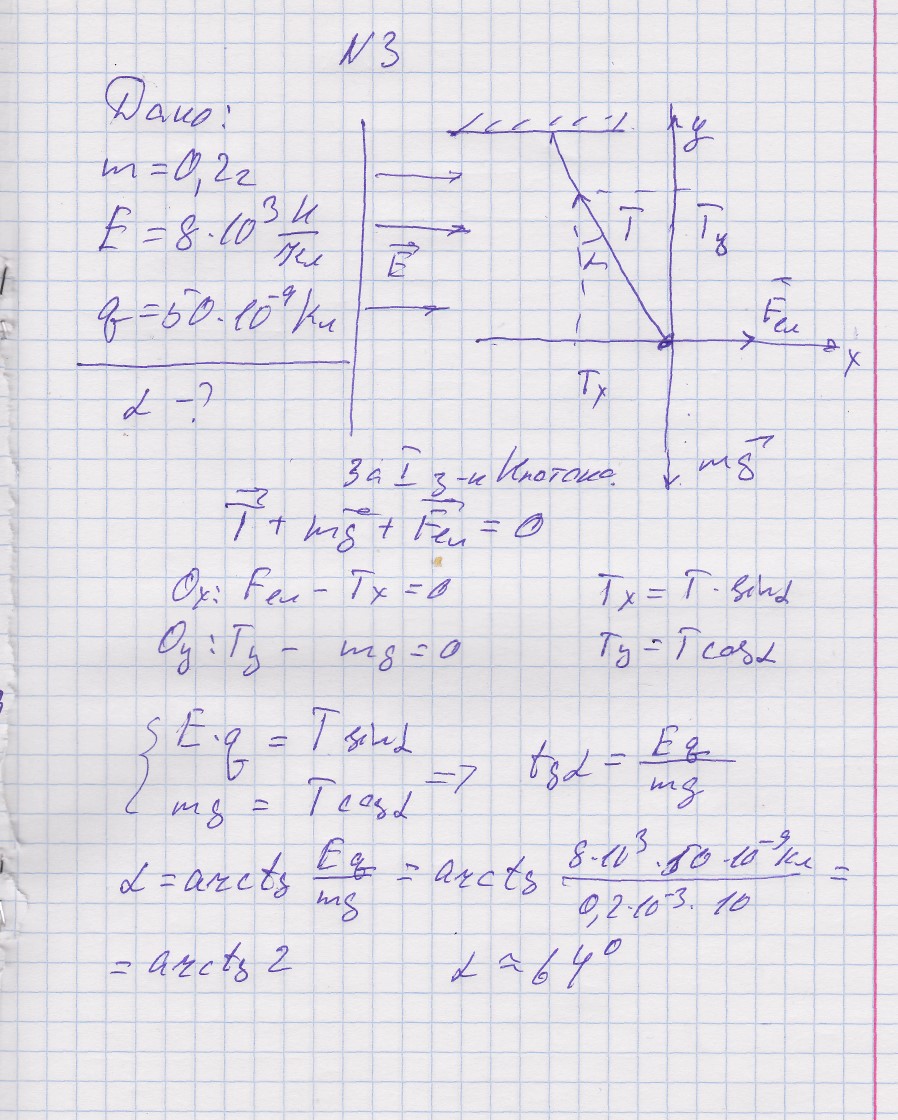 N3
Дано:
m = 0,2г
E = 8·10³ Н/Кл
q = 50·10⁻⁹ Кл
α - ?
E
y
T
Ty
α
Fел
x
Tx
mg
За I з-н Ньютона.
T + mg + Fел = 0
Ox: Fел - Tx = 0 Tx = T · sinα
Oy: Ty - mg = 0 Ty = T cosα
{ E·q = T sinα
mg = T cosα => tgα = Eq/mg
α = arctg Eq/mg = arctg 8·10³·50·10⁻⁹Кл / 0,2·10⁻³·10 =
= arctg 2 α ≈ 64⁰